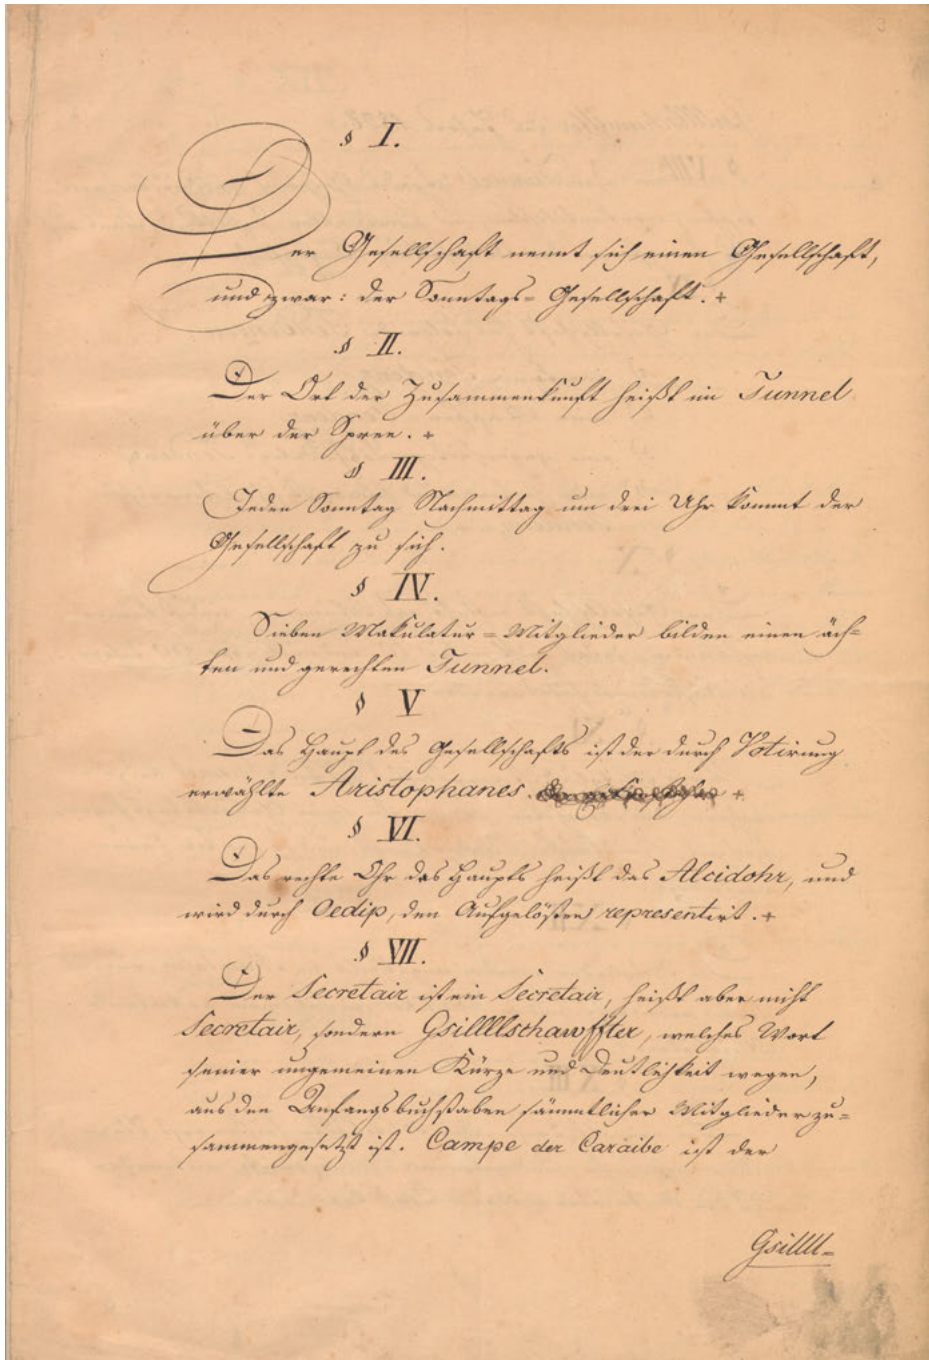 3
§ I.
Der Gesellschaft nennt sich einen Gesellschaft,
und zwar: der Sonntags-Gesellschaft. +
§ II.
Der Ort der Zusammenkunft heißt im Tunnel
über der Spree. +
§ III.
Jeden Sonntag Nachmittag um drei Uhr kommt der
Gesellschaft zu sich.
§ IV.
Sieben Makulatur-Mitglieder bilden einen äch-
ten und gerechten Tunnel.
§ V
Das Haupt des Gesellschafts ist der durch Votirung
erwählte Aristophanes. +
§ VI.
Das rechte Ohr des Haupts heißt das Alcidohr, und
wird durch Oedip, den Aufgelößten representirt. +
§ VII.
Der Secretair ist ein Secretair, heißt aber nicht
Secretair, sondern Gsillllschawffter, welches Wort
seiner ungemeinen Kürze und Deutlichkeit wegen,
aus den Anfangsbuchstaben sämmtlicher Mitglieder zu-
sammengesetzt ist. Campe der Caraibe ist der
Gsillll-